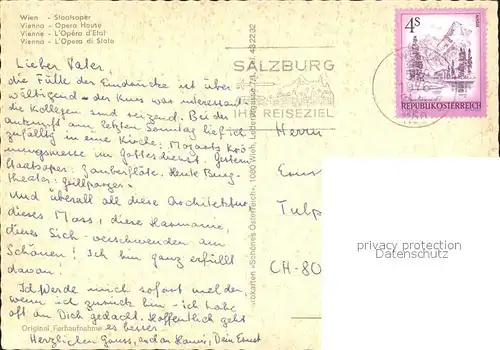 Wien - Staatsoper
Vienna - Opera House
Vienne - L'Opéra d'Etat
Vienna - L'Opera di Stato
Lieber Vater,
die Fülle der Eindrücke ist über
wältigend. der Kurs war interessant
die Kollegen sind reizend. Bei der
Ankunft am letzten Sonntag lief ich
zufällig in eine Kirche: Mozarts Krö
nungsmesse im Gottesdienst. Gestern
Staatsoper: Zauberflöte. Heute Burg-
theater: Grillparzer.
Und überall all diese Architektur,
dieses Mass, diese Harmonie,
dieses Sich-verschwenden am
Schönen! Ich bin ganz erfüllt
davon!
Ich werde mich sofort melden,
wenn ich zurück bin - ich habe
oft an Dich gedacht. Hoffentlich geht
es besser.
Herzlichen Gruss, auch an Dein Ernst
Original Farbaufnahme
SALZBURG
IHR REISEZIEL
4S
REPUBLIK ÖSTERREICH
Herrn
Ernst
Tulp
CH-80
«Schönes Österreich», 1080 Wien,
privacy protection
Datenschutz